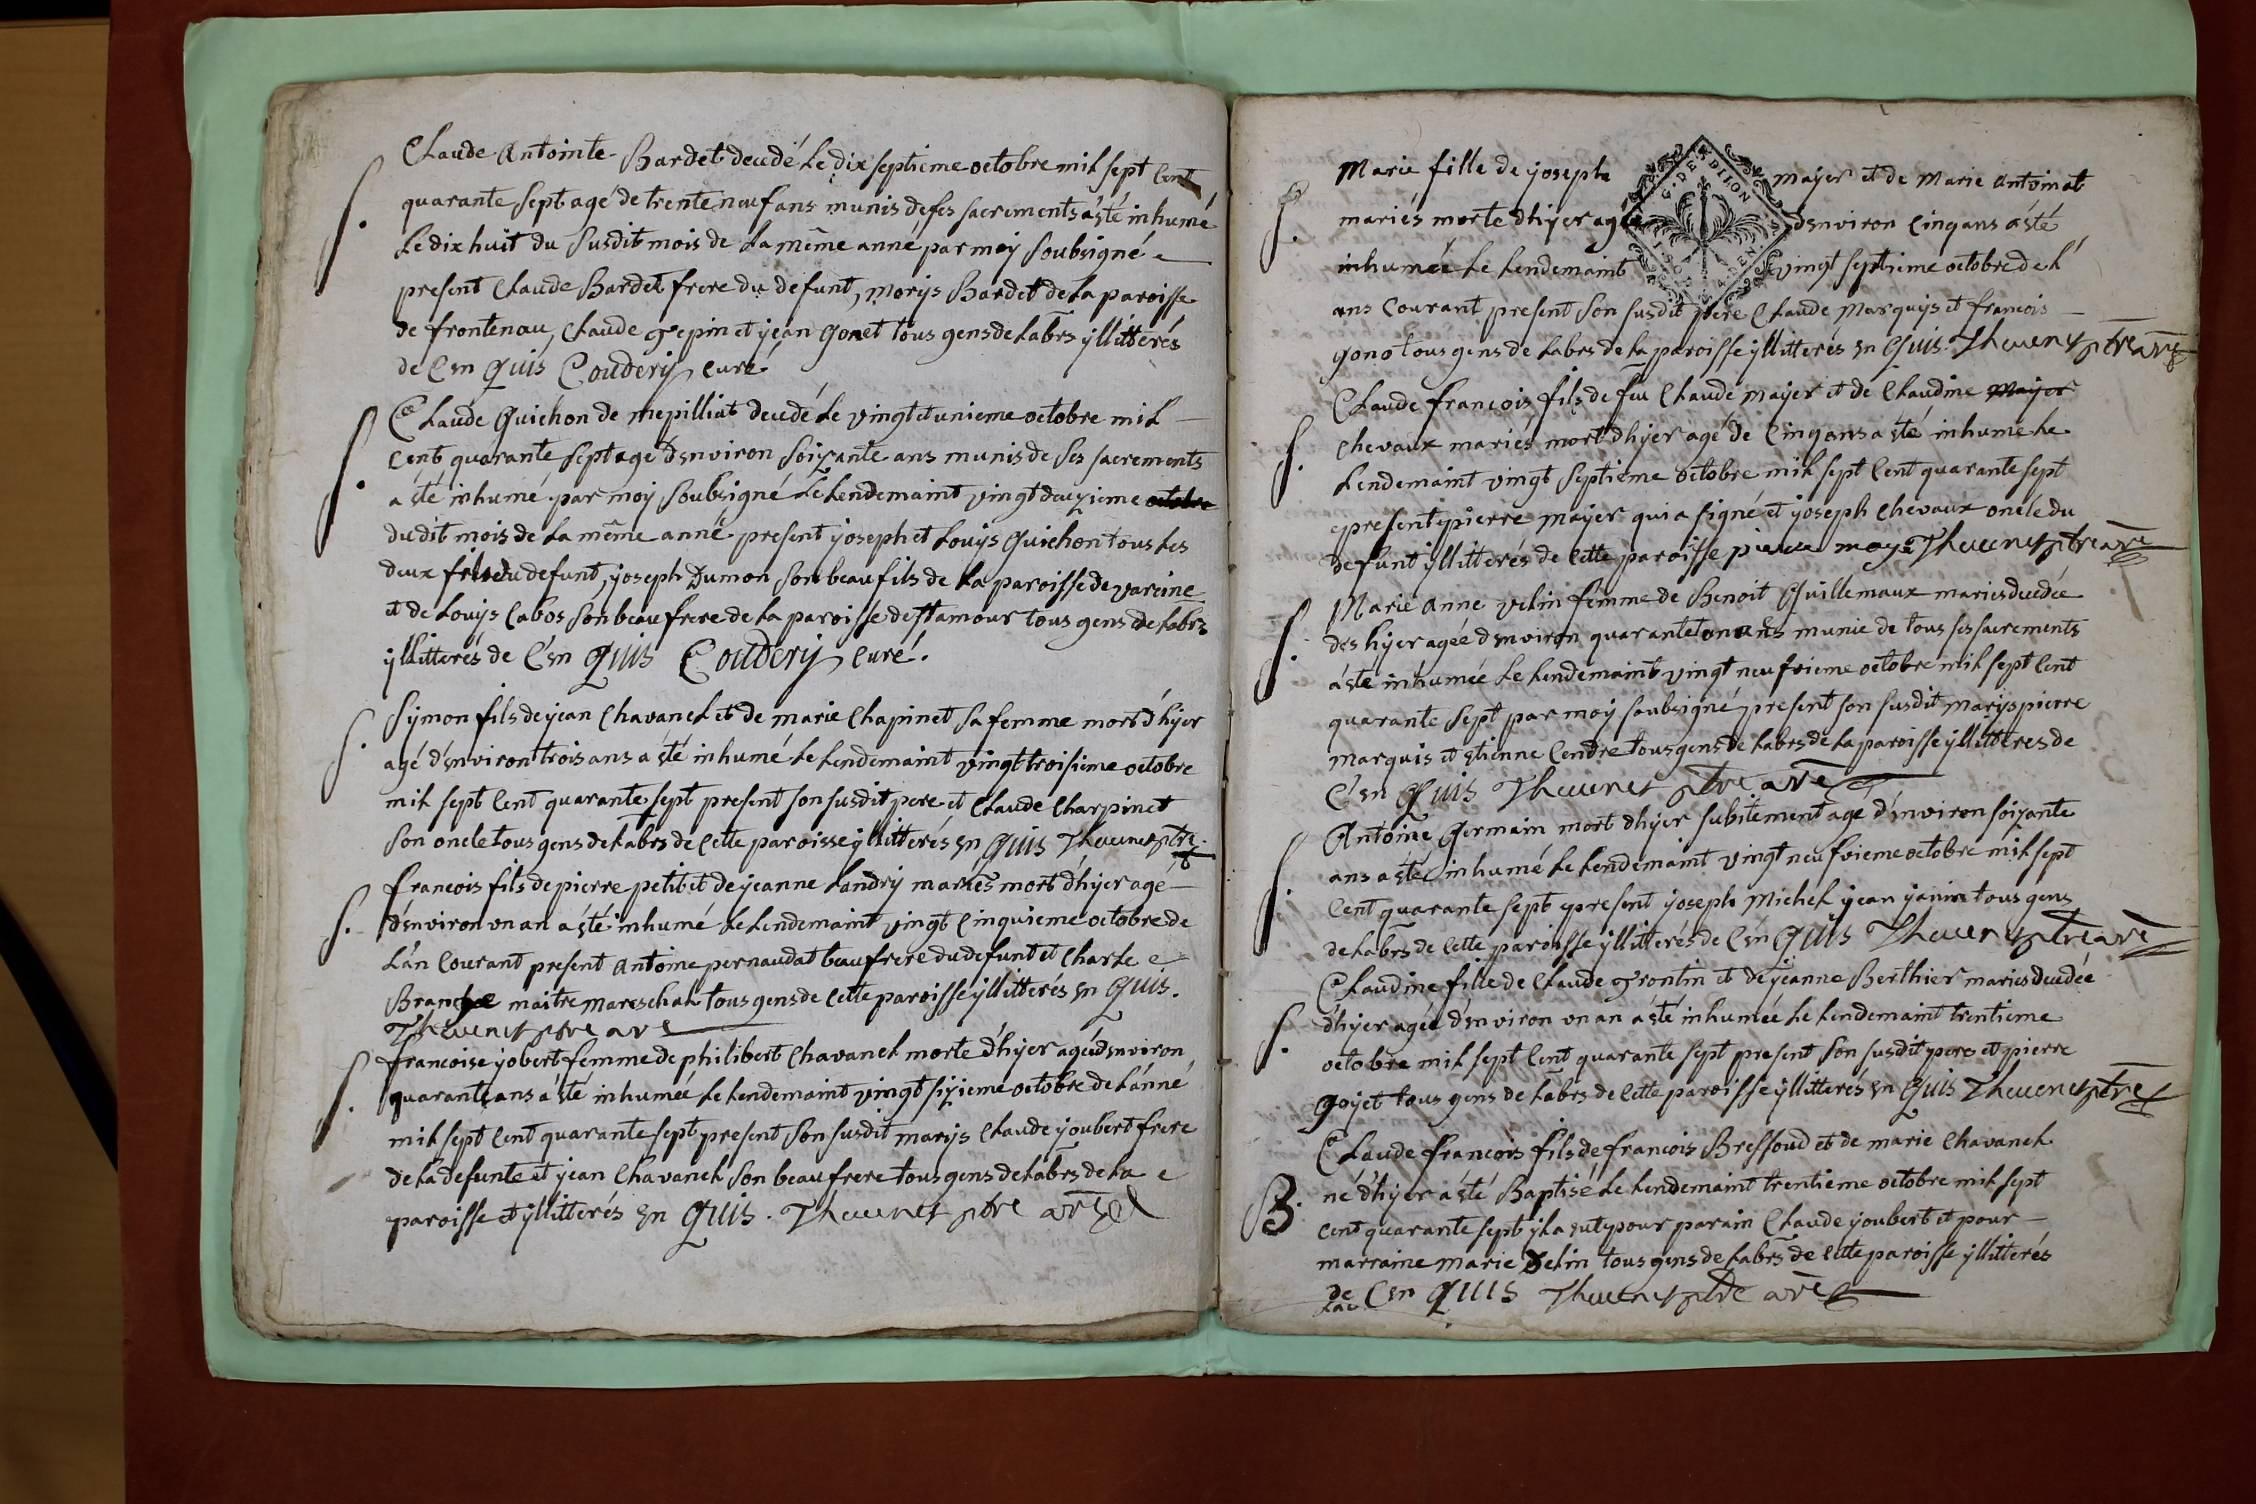 Claude Antointe Bardet deudé le dix septieme octobre mil sept Cent
quarante sept agé de trente neuf ans munis de ses sacrements a sté inhumé
le dix huit du susdit mois de la même anné par moy soubsigné
present Claude Bardet frere du defunt, morys Bardet de la paroisse
de frontenau, Claude et yean gonet tous gens de labrs yllitterés
de Cen quis Coudery curé
S.
Claude Guichon de mepilliat deudé le vingt et unieme octobre mil
cent quarante sept agé denviron soixante ans munis de ses sacrements
a sté inhumé par moy soubsigné le lendemaint vingt deuxieme octobre
dudit mois de la même anné present yoseph et Louys Guichon tous les
deux du defunt, yoseph Dumon son beau fils de la paroisse de vareine
et de Louys Cabos son beau frere de la paroisse de st amour tous gens de labrs
yllitterés de C'en quis Coudery curé.
S.
Symon fils de yean Chavanel et de marie Chapinet sa femme mort d'hyer
agé d'environ trois ans a sté inhumé le lendemaint vingt troisieme octobre
mil sept Cent quarante sept present son susdit pere et Claude Charpinet
son oncle tous gens de labrs de cette paroisse yllitterés en quis Thevenet ptre
S.
francois fils de pierre petit et de yeanne Landry mariés mort d'hyer agé
d'environ un an a sté inhumé le lendemaint vingt Cinquieme octobre de
l'an Courant present Antoine pernaudat beau frere du defunt et Charle
maitre mareschal tous gens de cette paroisse yllitterés en quis.
Thevenet ptre
S.
francoise yobert femme de philibert Chavanel morte d'hyer agée denviron
quarante ans a sté inhumée le lendemaint vingt sixieme octobre de l'anné
mil sept Cent quarante sept present son susdit marys Claude youbert frere
de la defunte et yean Chavanel son beau frere tous gens de labrs de la
paroisse et yllitterés en quis. Thevenet ptre
S.
G. DE DIJON
Marie fille de yoseph mayer et de Marie Antoinat
mariés morte d'hyer agée denviron Cinq ans a sté
inhumée le lendemaint vingt septieme octobre de l'
ans Courant present son susdit pere Claude Marquys et francois
gono tous gens de labrs de la paroisse yllitterés en quis. Thevenet ptre
S.
Claude francois fils de feu Claude mayer et de Claudine mayer
Chevaux mariés mort d'hyer agé de Cinq ans a sté inhumé le
lendemaint vingt septieme octobre mil sept Cent quarante sept
present pierre mayer qui a signé et yoseph Chevaux oncle du
defunt yllitterés de cette paroisse Thevenet ptre
S.
Marie Anne velin femme de Benoit Guillemaux mariés deudée
des hyer agée denviron ans munie de tous ses sacrements
a sté inhumée le lendemaint vingt neufvieme octobre mil sept Cent
quarante sept par moy soubsigné present son susdit marys pierre
marquis et etienne Cendre tous gens de labrs de la paroisse yllitterés de
C'en quis Thevenet ptre
S.
Antoine Germain mort d'hyer subitement agé d'environ soixante
ans a sté inhumé le lendemaint vingt neufvieme octobre mil sept
Cent quarante sept present yoseph Michel yean yanin tous gens
de labrs de cette paroisse yllitterés de C'en quis Thevenet ptre
S.
Claudine fille de Claude et de yeanne Berthier mariés deudée
d'hyer agée d'environ un an a sté inhumée le lendemaint trentieme
octobre mil sept Cent quarante sept present son susdit pere et pierre
goyet tous gens de labrs de cette paroisse yllitterés en quis Thevenet ptre
S.
Claude francois fils de francois Bressoud et de marie Chavanel
né d'hyer a sté Baptisé le lendemaint trentieme octobre mil sept
cent quarante sept yl a eut pour parain Claude youbert et pour
marraine marie velin tous gens de labrs de cette paroisse yllitterés
de Cen quis Thevenet ptre
B.